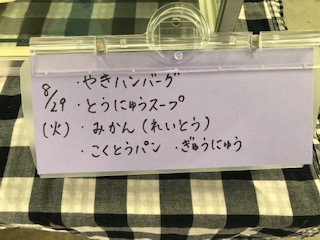 8/29
(火)
・やきハンバーグ
・とうにゅうスープ
・みかん(れいとう)
・こくとうパン ・ぎゅうにゅう